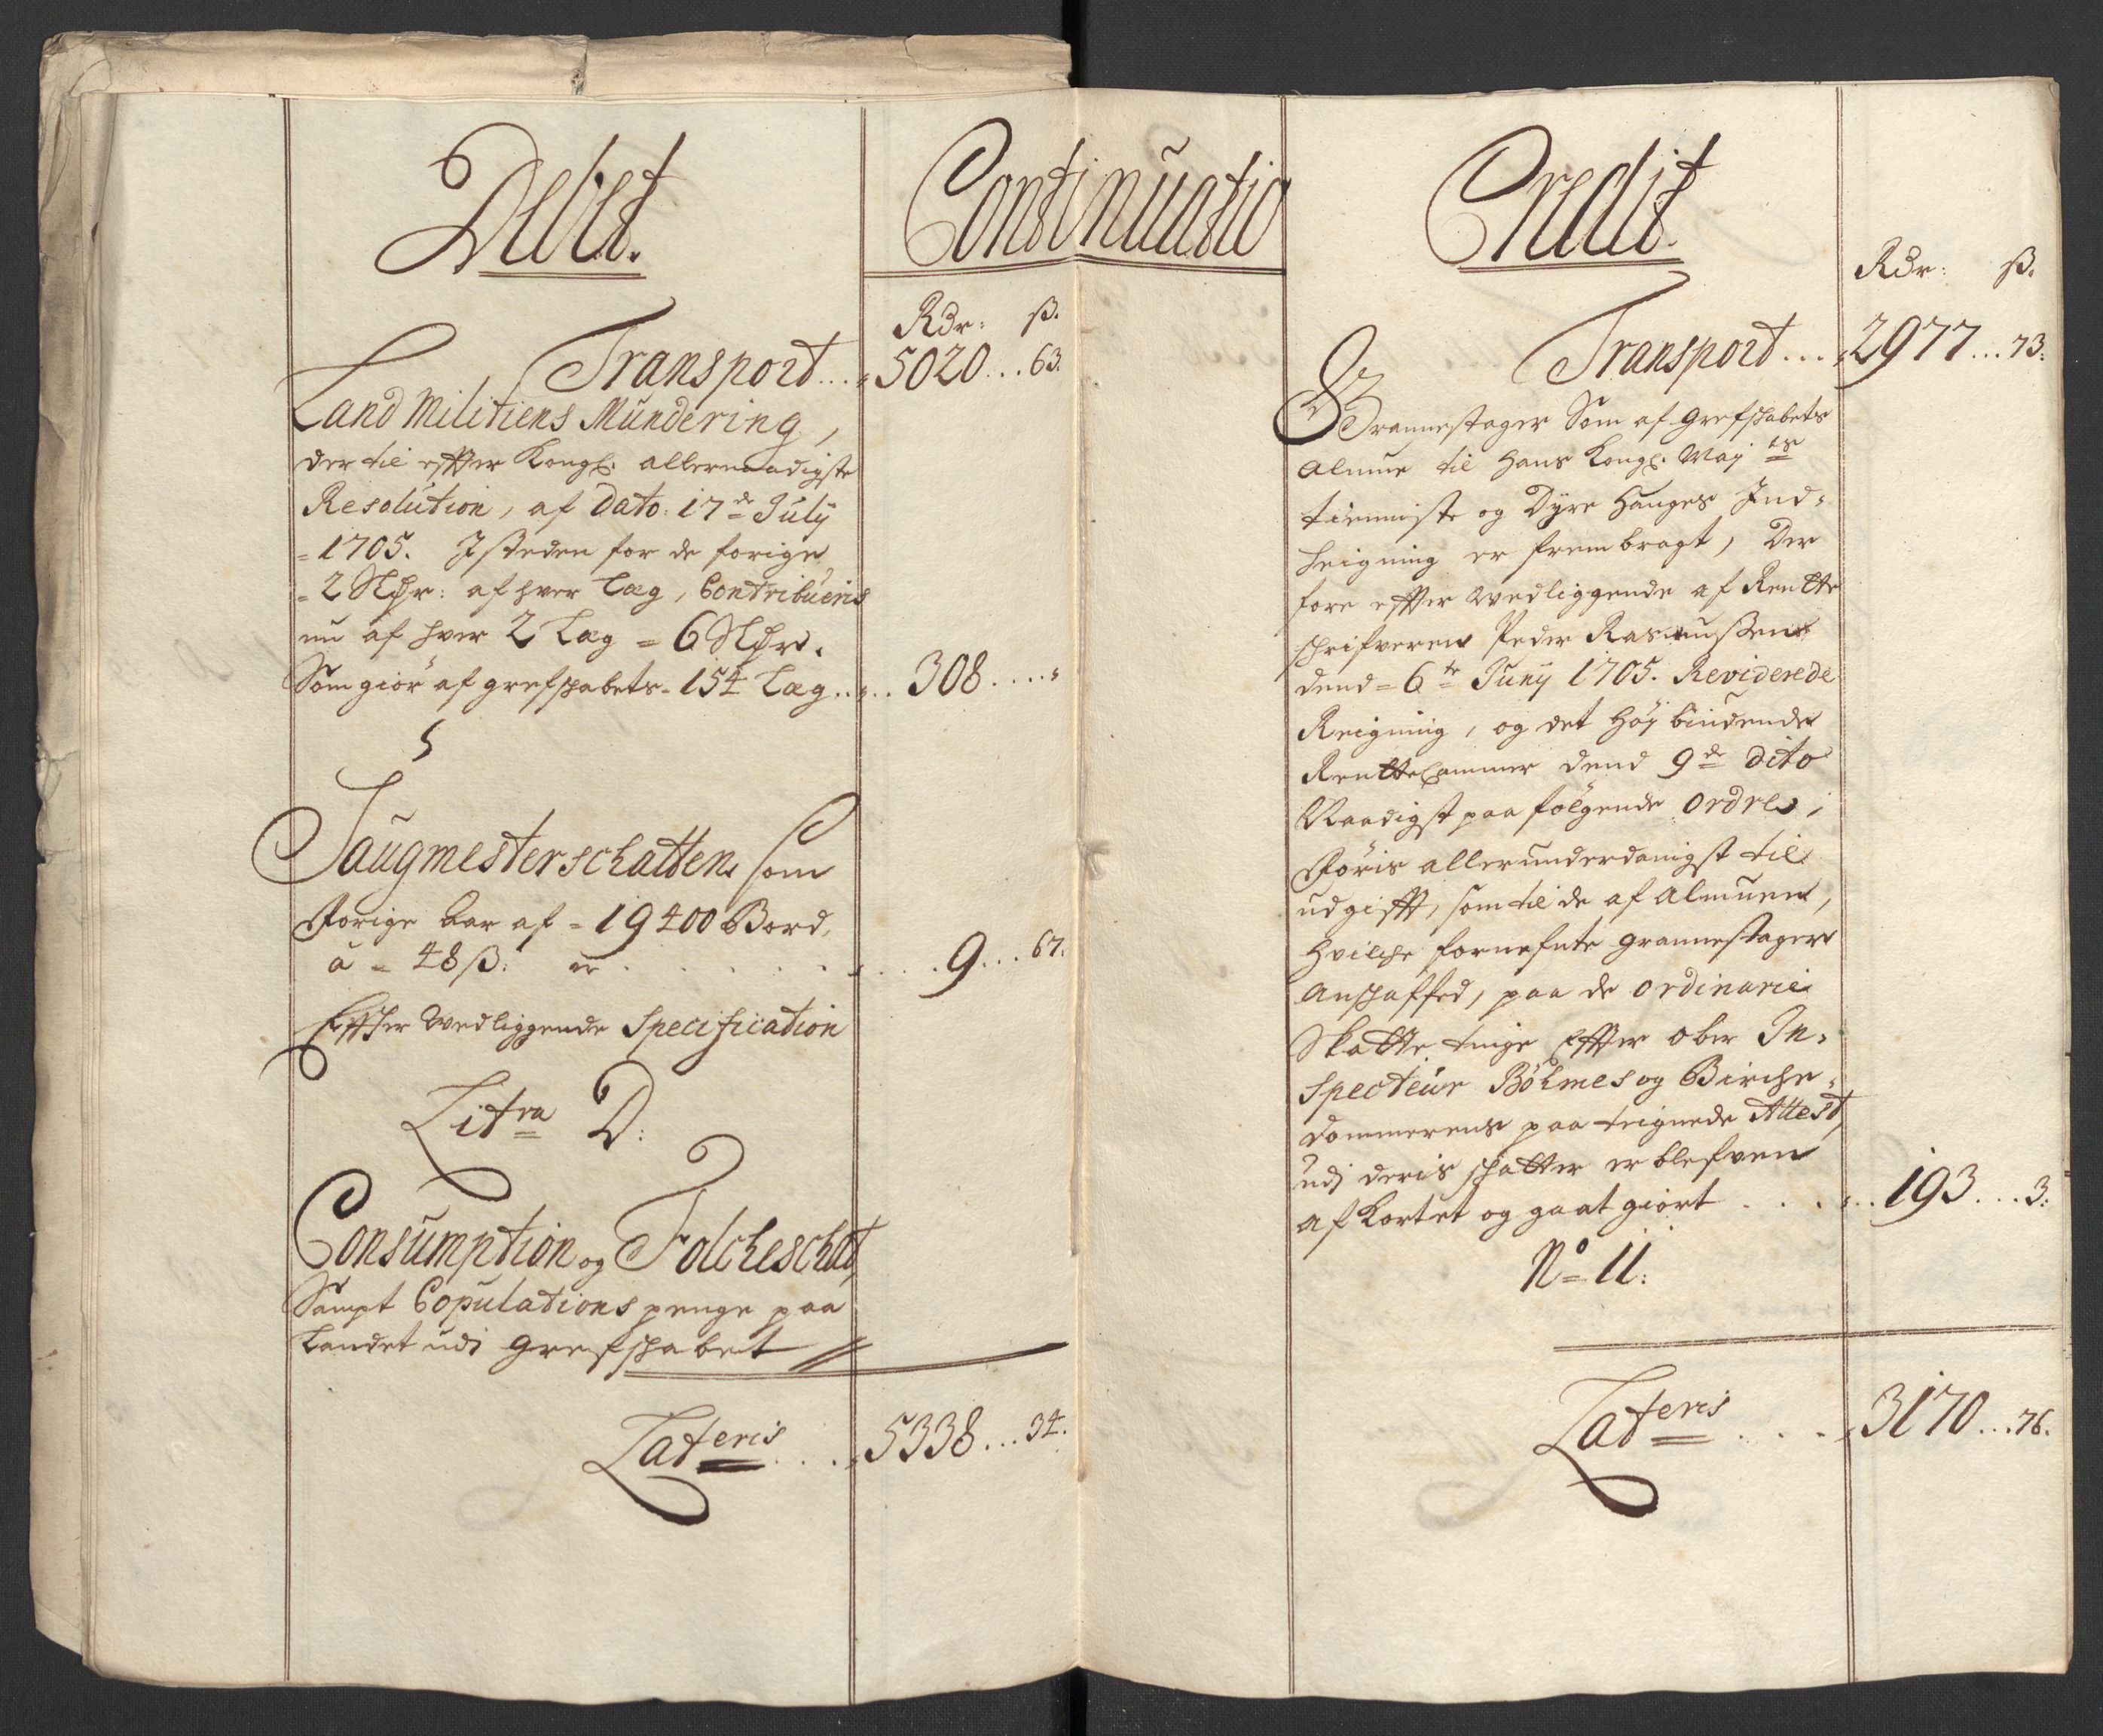 Debet.
Continuatio
Rdr: ß.
Transport.... 5020...63.
Land Militiens Mundering,
der til effter Kongl: allernaadigste
Resolution, af Dato: 17de July
=1705. I steden for de forige
=2 Rdr: af hver Læg, Contribueris
nu af hver 2 Læg = 6 Rdr.
Som giör af grefskabets = 154 Læg.... 308....
Saugmesterschatten som
Forige bar af = 19400 Bord,
à = 48 ß: er . . . . . . 9...67.
Effter Vedliggende Specification
Litra D:
Consumption og Folcheschat,
Sampt Copulations penge paa
Landet udi Grefskabet
Lateris.... 5338...34.
Credit.
Rdr: ß.
Transport.... 2977...73.
Grannestager Som af Grefskabets
Almue til Hans Kongl: Mayts
tienniste og Dyre Hauges Ind=
heigning er frembragt, Der
fore effter Vedliggende af Rentte
schrifveren Peder Rasmussens
dend = 6te Juny 1705. Reviderede
Reigning, og det höybiudende
RentteCammer dend 9de dito
Naadigst paa fölgende Ordre,
Föris allerunderdanigst til
udgifft, som til de af Almuen,
Hvilche fornefnte grannestager
Anskaffed, paa de Ordinarie
Skatte tinge Effter ober In=
specteur Böhmes og Birche=
dommerens paa teignede Attest,
udi deris skatter er blefven
af Kortet og gaat giort . . . . 193...3.
No 11:
Lateris.... 3170...76.